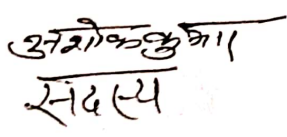 अशोक कुमार
सदस्य